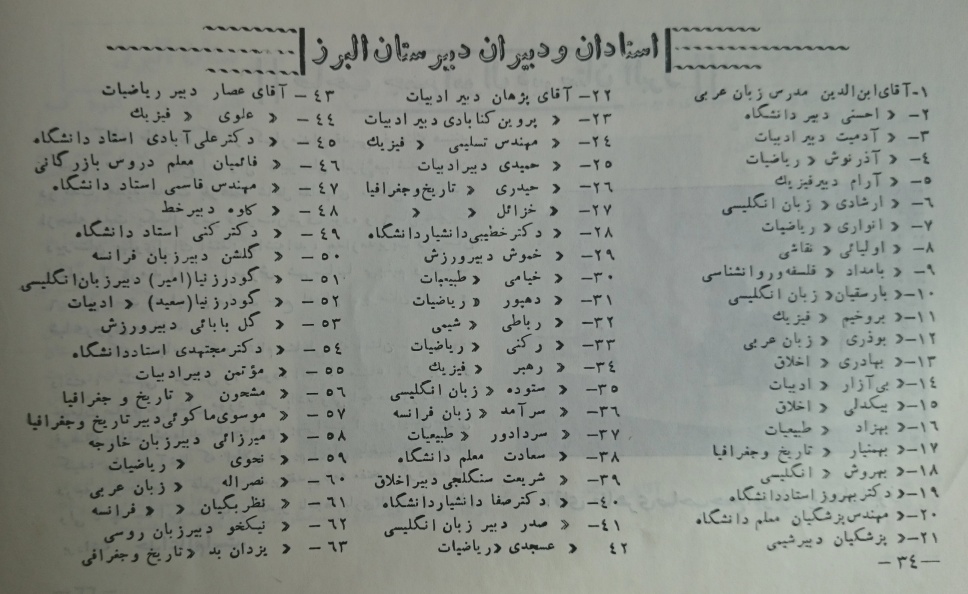 استادان و دبیران دبیرستان البرز
۱- آقای ابن‌الدین مدرس زبان عربی
۲- « احسنی دبیر دانشگاه
۳- « آدمیت دبیر ادبیات
۴- « آذرنوش « ریاضیات
۵- « آرام دبیر فیزیك
۶- « ارشادی « زبان انگلیسی
۷- « انواری « ریاضیات
۸- « اولیائی « نقاشی
۹- « بامداد « فلسفه و روانشناسی
۱۰- « بارسقیان « زبان انگلیسی
۱۱- « بروخیم « فیزیك
۱۲- « بوذری « زبان عربی
۱۳- « بهادری « اخلاق
۱۴- « بی‌آزار « ادبیات
۱۵- « بیكدلی « اخلاق
۱۶- « بهزاد « طبیعیات
۱۷- « بهمنیار « تاریخ و جغرافیا
۱۸- « بهروش « انگلیسی
۱۹- « دكتر بهروز استاد دانشگاه
۲۰- « مهندس پزشكیان معلم دانشگاه
۲۱- « پزشكیان دبیر شیمی
۲۲- آقای پژهان دبیر ادبیات
۲۳- « پروین گنابادی دبیر ادبیات
۲۴- « مهندس تسلیمی « فیزیك
۲۵- « حمیدی دبیر ادبیات
۲۶- « حیدری « تاریخ و جغرافیا
۲۷- « خزائل « «
۲۸- « دكتر خطیبی دانشیار دانشگاه
۲۹- « خموش دبیر ورزش
۳۰- « خیامی « طبیعیات
۳۱- « دهپور « ریاضیات
۳۲- « رباطی « شیمی
۳۳- « ركنی « ریاضیات
۳۴- « رهبر « فیزیك
۳۵- « ستوده « زبان انگلیسی
۳۶- « سرآمد « زبان فرانسه
۳۷- « سردادور « طبیعیات
۳۸- « سعادت معلم دانشگاه
۳۹- « شریعت سنگلجی دبیر اخلاق
۴۰- « دكتر صفا دانشیار دانشگاه
۴۱- « صدر دبیر زبان انگلیسی
۴۲ « عسجدی « ریاضیات
۴۳- آقای عصار دبیر ریاضیات
۴۴- « علوی « فیزیك
۴۵- « دكتر علی‌آبادی استاد دانشگاه
۴۶- « قائمیان معلم دروس بازرگانی
۴۷- « مهندس قاسمی استاد دانشگاه
۴۸- « كاوه دبیر خط
۴۹- « دكتر كنی استاد دانشگاه
۵۰- « گلشن دبیر زبان فرانسه
۵۱- « گودرزنیا (امیر) دبیر زبان انگلیسی
۵۲- « گودرزنیا (سعید) « ادبیات
۵۳- « گل بابائی دبیر ورزش
۵۴- « دكتر مجتهدی استاد دانشگاه
۵۵- « مؤتمن دبیر ادبیات
۵۶- « مشحون « تاریخ و جغرافیا
۵۷- « موسوی ماكوئی دبیر تاریخ و جغرافیا
۵۸- « میرزائی دبیر زبان خارجه
۵۹- « نحوی « ریاضیات
۶۰- « نصراله « زبان عربی
۶۱- « نظربگیان « « فرانسه
۶۲- « نیكخو دبیر زبان روسی
۶۳- « یزدان بد « تاریخ و جغرافی
-۳۴-